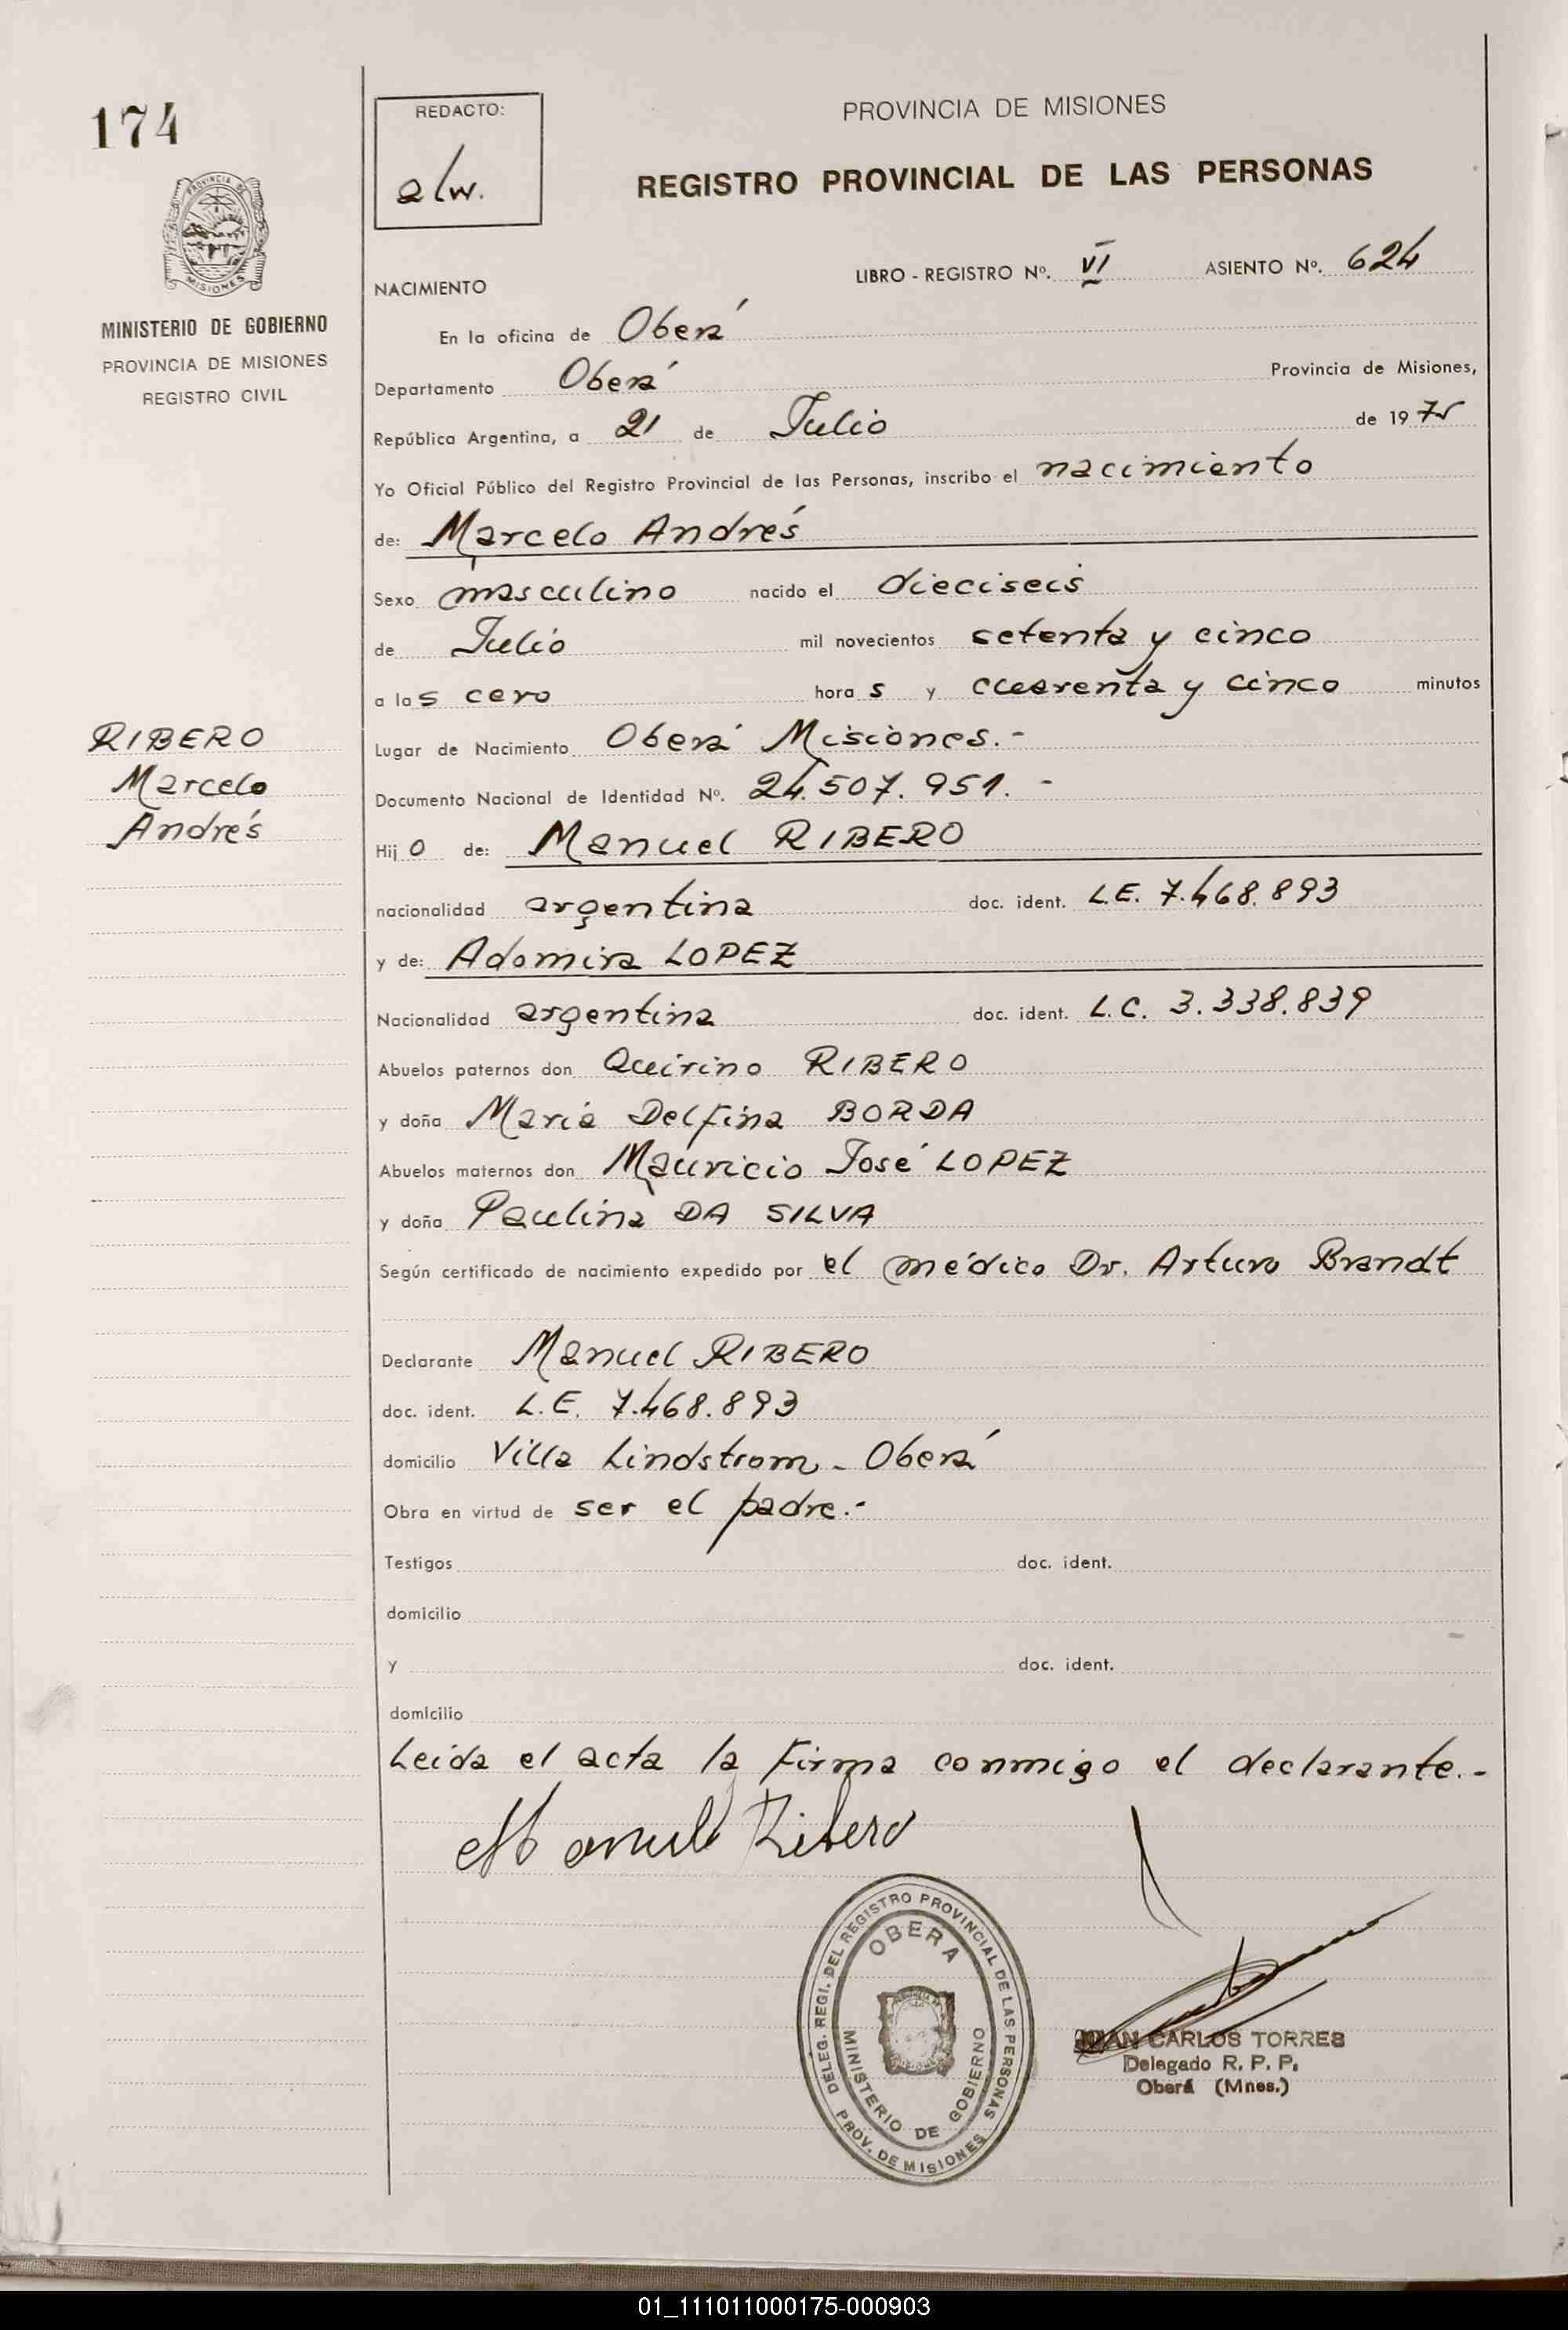 174
REDACTO:
alw.
PROVINCIA DE MISIONES
REGISTRO PROVINCIAL DE LAS PERSONAS
PROVINCIA DE
MISIONES
MINISTERIO DE GOBIERNO
PROVINCIA DE MISIONES
REGISTRO CIVIL
LIBRO - REGISTRO Nº. VI ASIENTO Nº. 624
NACIMIENTO
En la oficina de Oberá
Departamento Oberá Provincia de Misiones,
República Argentina, a 21 de Julio de 1975
Yo Oficial Público del Registro Provincial de las Personas, inscribo el nacimiento
de: Marcelo Andrés
Sexo masculino nacido el dieciseis
de Julio mil novecientos setenta y cinco
a las cero horas y cuarenta y cinco minutos
RIBERO
Marcelo
Andrés
Lugar de Nacimiento Oberá Misiones.-
Documento Nacional de Identidad Nº. 24.507.951.-
Hijo de: Manuel RIBERO
nacionalidad argentina doc. ident. L.E. 7.468.893
y de: Adomira LOPEZ
Nacionalidad argentina doc. ident. L.C. 3.338.839
Abuelos paternos don Quirino RIBERO
y doña Maria Delfina BORDA
Abuelos maternos don Mauricio José LOPEZ
y doña Paulina DA SILVA
Según certificado de nacimiento expedido por el médico Dr. Arturo Brandt
Declarante Manuel RIBERO
doc. ident. L.E. 7.468.893
domicilio Villa Lindstrom - Oberá
Obra en virtud de ser el padre.-
Testigos doc. ident.
domicilio
y doc. ident.
domicilio
Leida el acta la firma conmigo el declarante.-
Manuel Ribero
DELEG. REGI. DEL REGISTRO PROVINCIAL DE LAS PERSONAS
OBERA
MINISTERIO DE GOBIERNO
PROV. DE MISIONES
JUAN CARLOS TORRES
Delegado R. P. P.
Oberá (Mnes.)
01_111011000175-000903